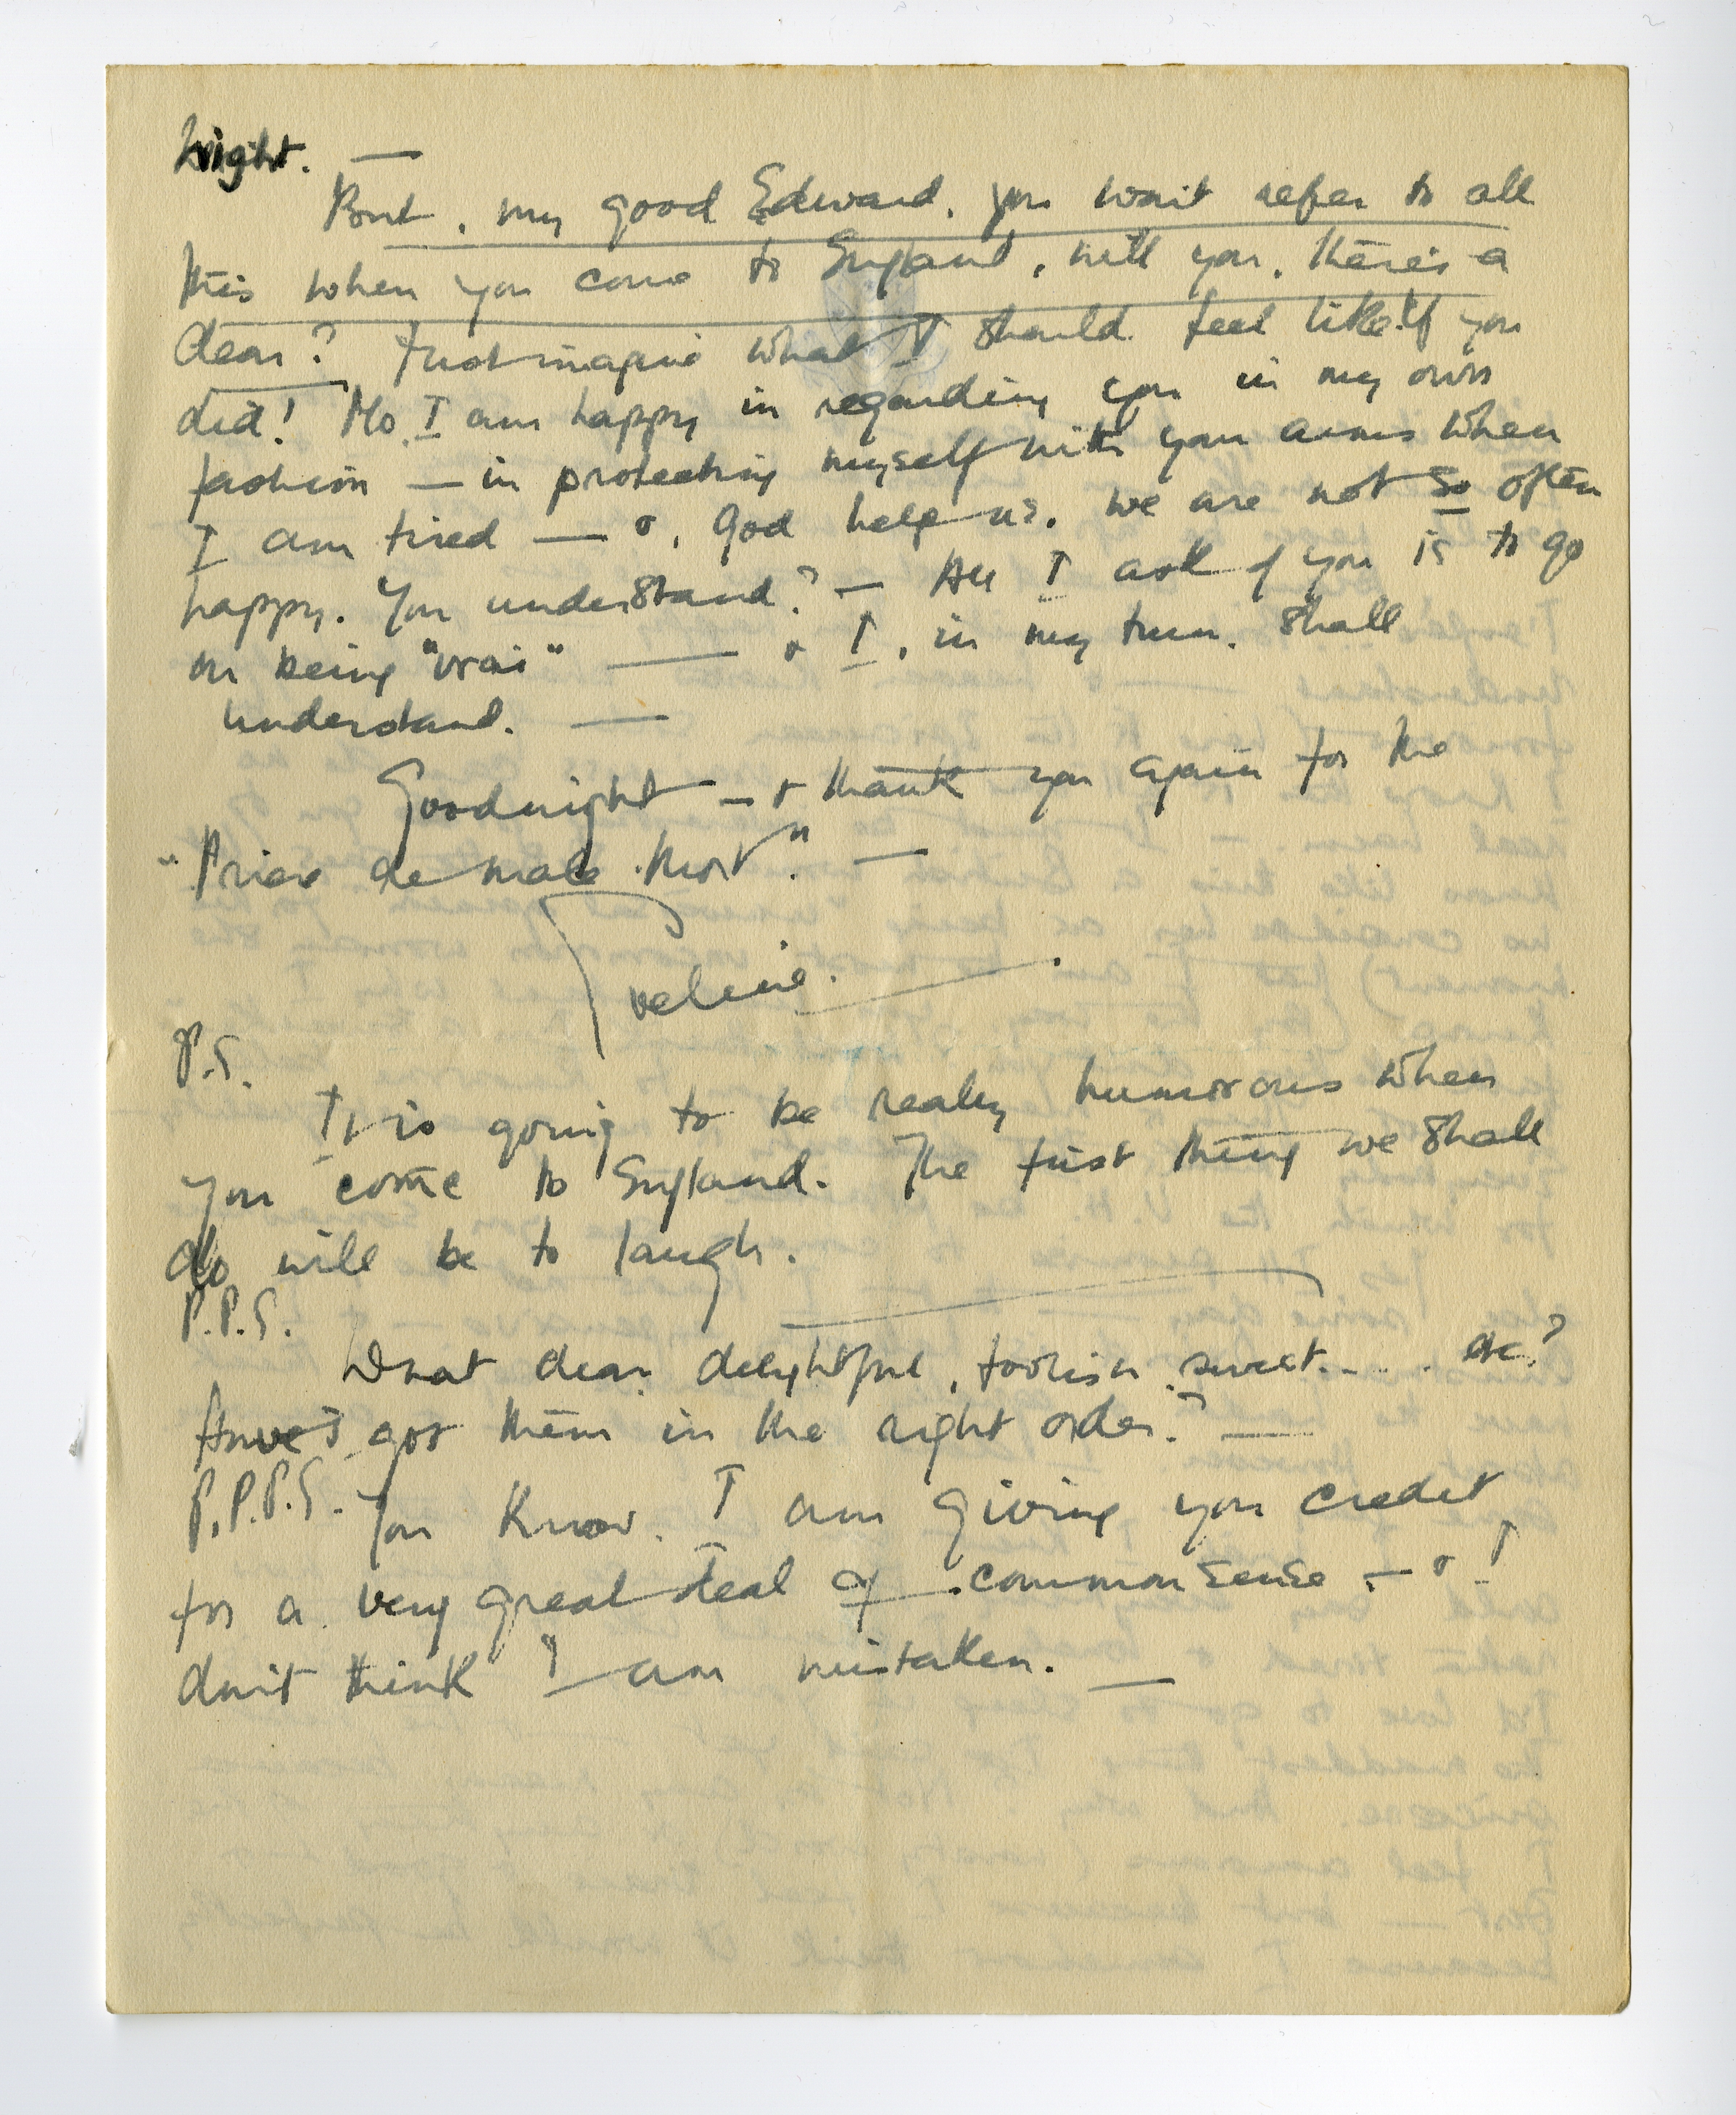 bright. —
But, my good Edward, you won't refer to all
this when you come to England, will you, there's a
dear? Just imagine what I should feel like if you
did! No, I am happy in regarding you in my own
fashion — in protecting myself with your arms when
I am tired — &, God help us, we are not so often
happy. You understand? — All I ask of you is to go
on being "vrai" — & I, in my turn, shall
understand. —
Goodnight — & thank you again for the
"Prier de male Mort". —
Eveline.
P.S.
It is going to be really humorous when
you come to England. The first thing we shall
do will be to laugh.
P.P.S.
What dear, delightful, foolish, sweet.... etc?
Have I got them in the right order? —
P.P.P.S. You know, I am giving you credit
for a very great deal of common sense — & I
don't think I am mistaken. —